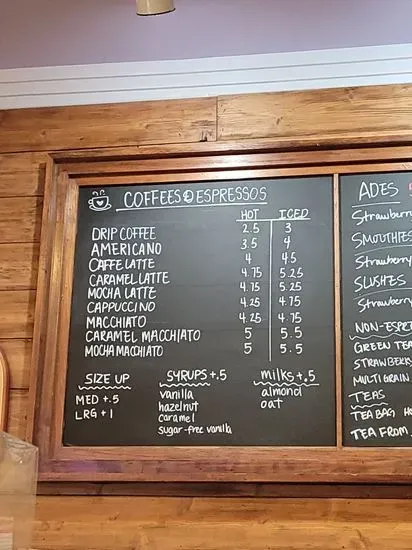 COFFEES & ESPRESSOS
HOT ICED
DRIP COFFEE 2.5 3
AMERICANO 3.5 4
CAFFE LATTE 4 4.5
CARAMEL LATTE 4.75 5.25
MOCHA LATTE 4.75 5.25
CAPPUCCINO 4.25 4.75
MACCHIATO 4.25 4.75
CARAMEL MACCHIATO 5 5.5
MOCHA MACCHIATO 5 5.5
SIZE UP
MED +.5
LRG +1
SYRUPS +.5
vanilla
hazelnut
caramel
sugar-free vanilla
MILKS +.5
almond
oat
ADES
Strawberry
SMOOTHIES
Strawberry
SLUSHES
Strawberry
NON-ESPRE
GREEN TEA
STRAWBERRY
MULTIGRAIN
TEAS
TEA BAG H
TEA FROM